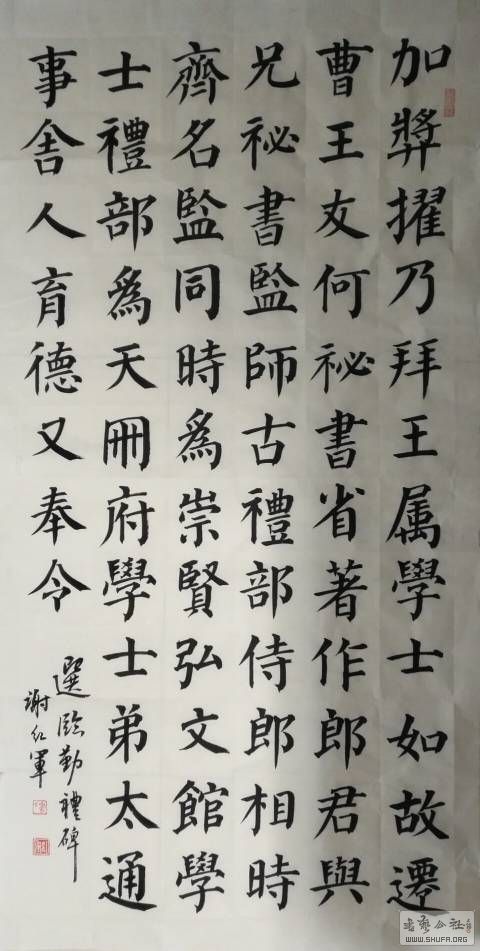 加獎擢乃拜王属學士如故遷
曹王友何祕書省著作郎君與
兄祕書監師古禮部侍郎相時
齊名監同時爲崇賢弘文館學
士禮部爲天冊府學士弟太通
事舍人育德又奉令
選臨勤禮碑
謝紅軍
书艺公社
WWW.SHUFA.ORG